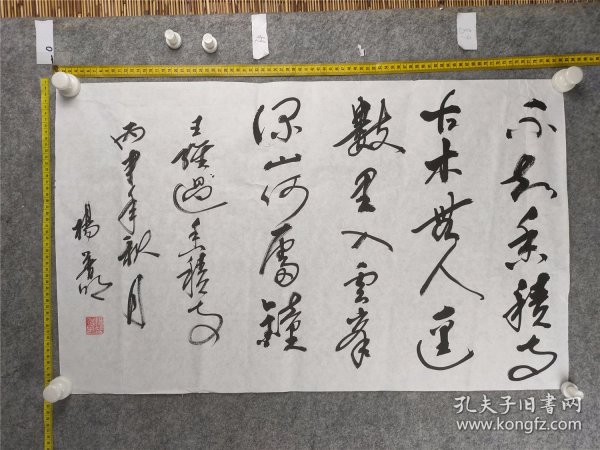 不知香積寺
古木無人逕
數里入雲峯
深山何處鐘
王維過香積寺
丙申年秋月
楊
孔夫子旧书网
www.kongfz.com